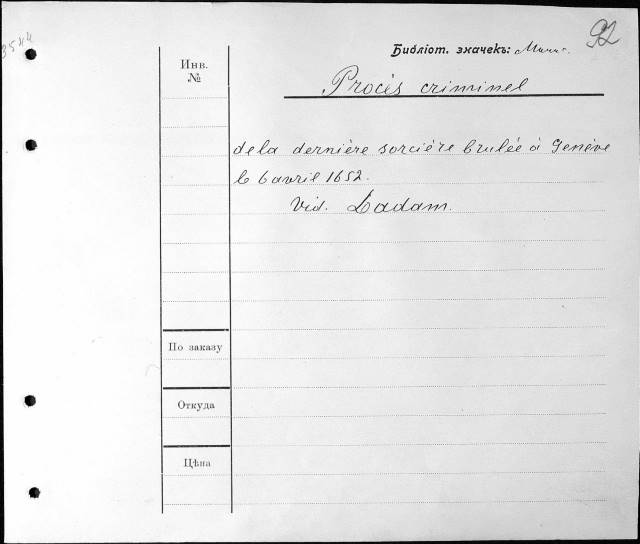 92
Библіот. значекъ:
Инв.
№
Procès criminel
de la dernière sorcière brulée à Genève
le 6 avril 1652.
Vid. Ladam.
По заказу
Откуда
Цѣна